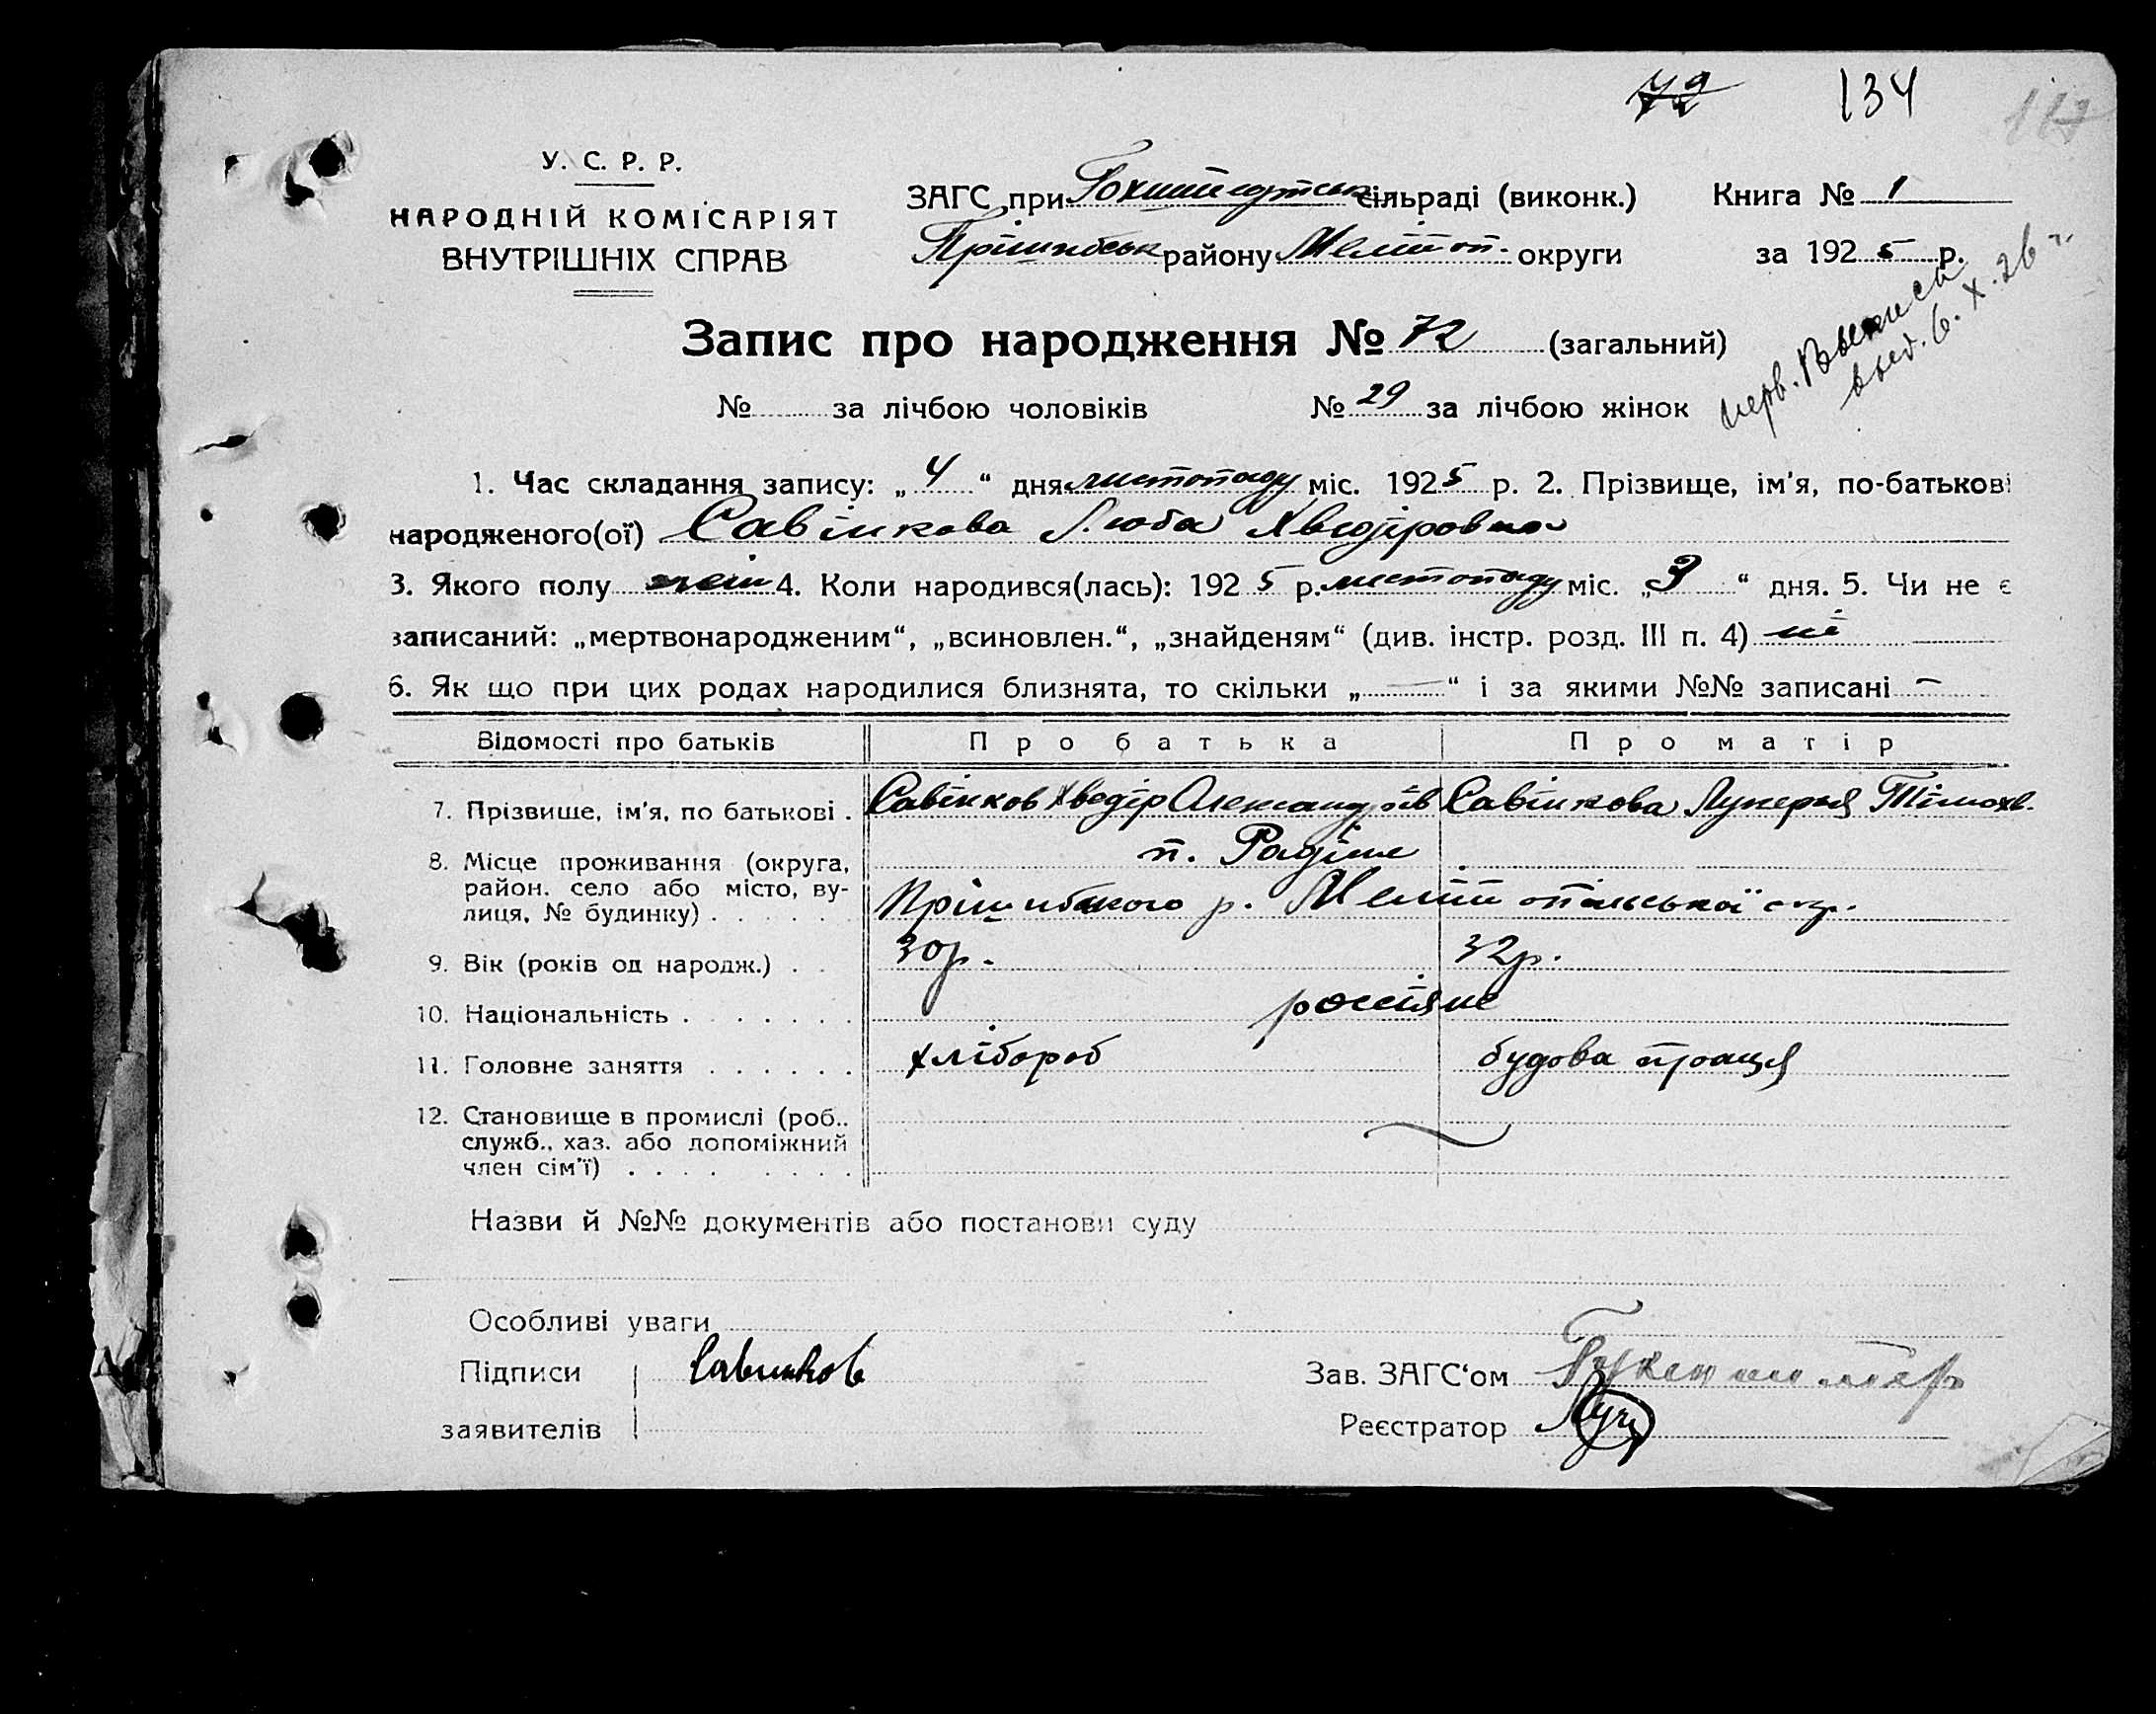 72 134 117
У. С. Р. Р.
НАРОДНІЙ КОМІСАРІЯТ
ВНУТРІШНІХ СПРАВ
ЗАГС при Гохштедтськ сільраді (виконк.) Книга № 1
Прішибськ району Меліт оп. округи за 1925 р.
перв. Выписи
выд. 6. X. 26 г.
Запис про народження № 72 (загальний)
№ за лічбою чоловіків № 29 за лічбою жінок
1. Час складання запису: „4“ дня листопаду міс. 1925 р. 2. Прізвище, ім'я, по-батькові
народженого(ої) Савінкова Люба Хведіровна
3. Якого полу жін 4. Коли народився(лась): 1925 р. листопаду міс. „3“ дня. 5. Чи не є
записаний: „мертвонародженим“, „всиновлен.“, „знайденям“ (див. інстр. розд. III п. 4) ні
6. Як що при цих родах народилися близнята, то скільки „—“ і за якими №№ записані —
Відомості про батьків Про батька Про матір
7. Прізвише, ім'я, по батькові . Савінков Хведір Олександрів Савінкова Лукерья Тімохв.
8. Місце проживання (округа, район. село або місто, ву-
лиця, № будинку) . . . . . п. Радіне
Прішибського р. Меліт опільської окр.
9. Вік (років од народж.) . . 30р. 32р.
10. Національність . . . . . . . россіяне
11. Головне заняття . . . . . . хлібороб будова праця
12. Становище в промислі (роб..
служб., хаз. або допоміжний
член сім'ї) . . . . . . . .
Назви й №№ документів або постанови суду
Особливі уваги
Підписи Савинков Зав. ЗАГС'ом
заявителів Реєстратор